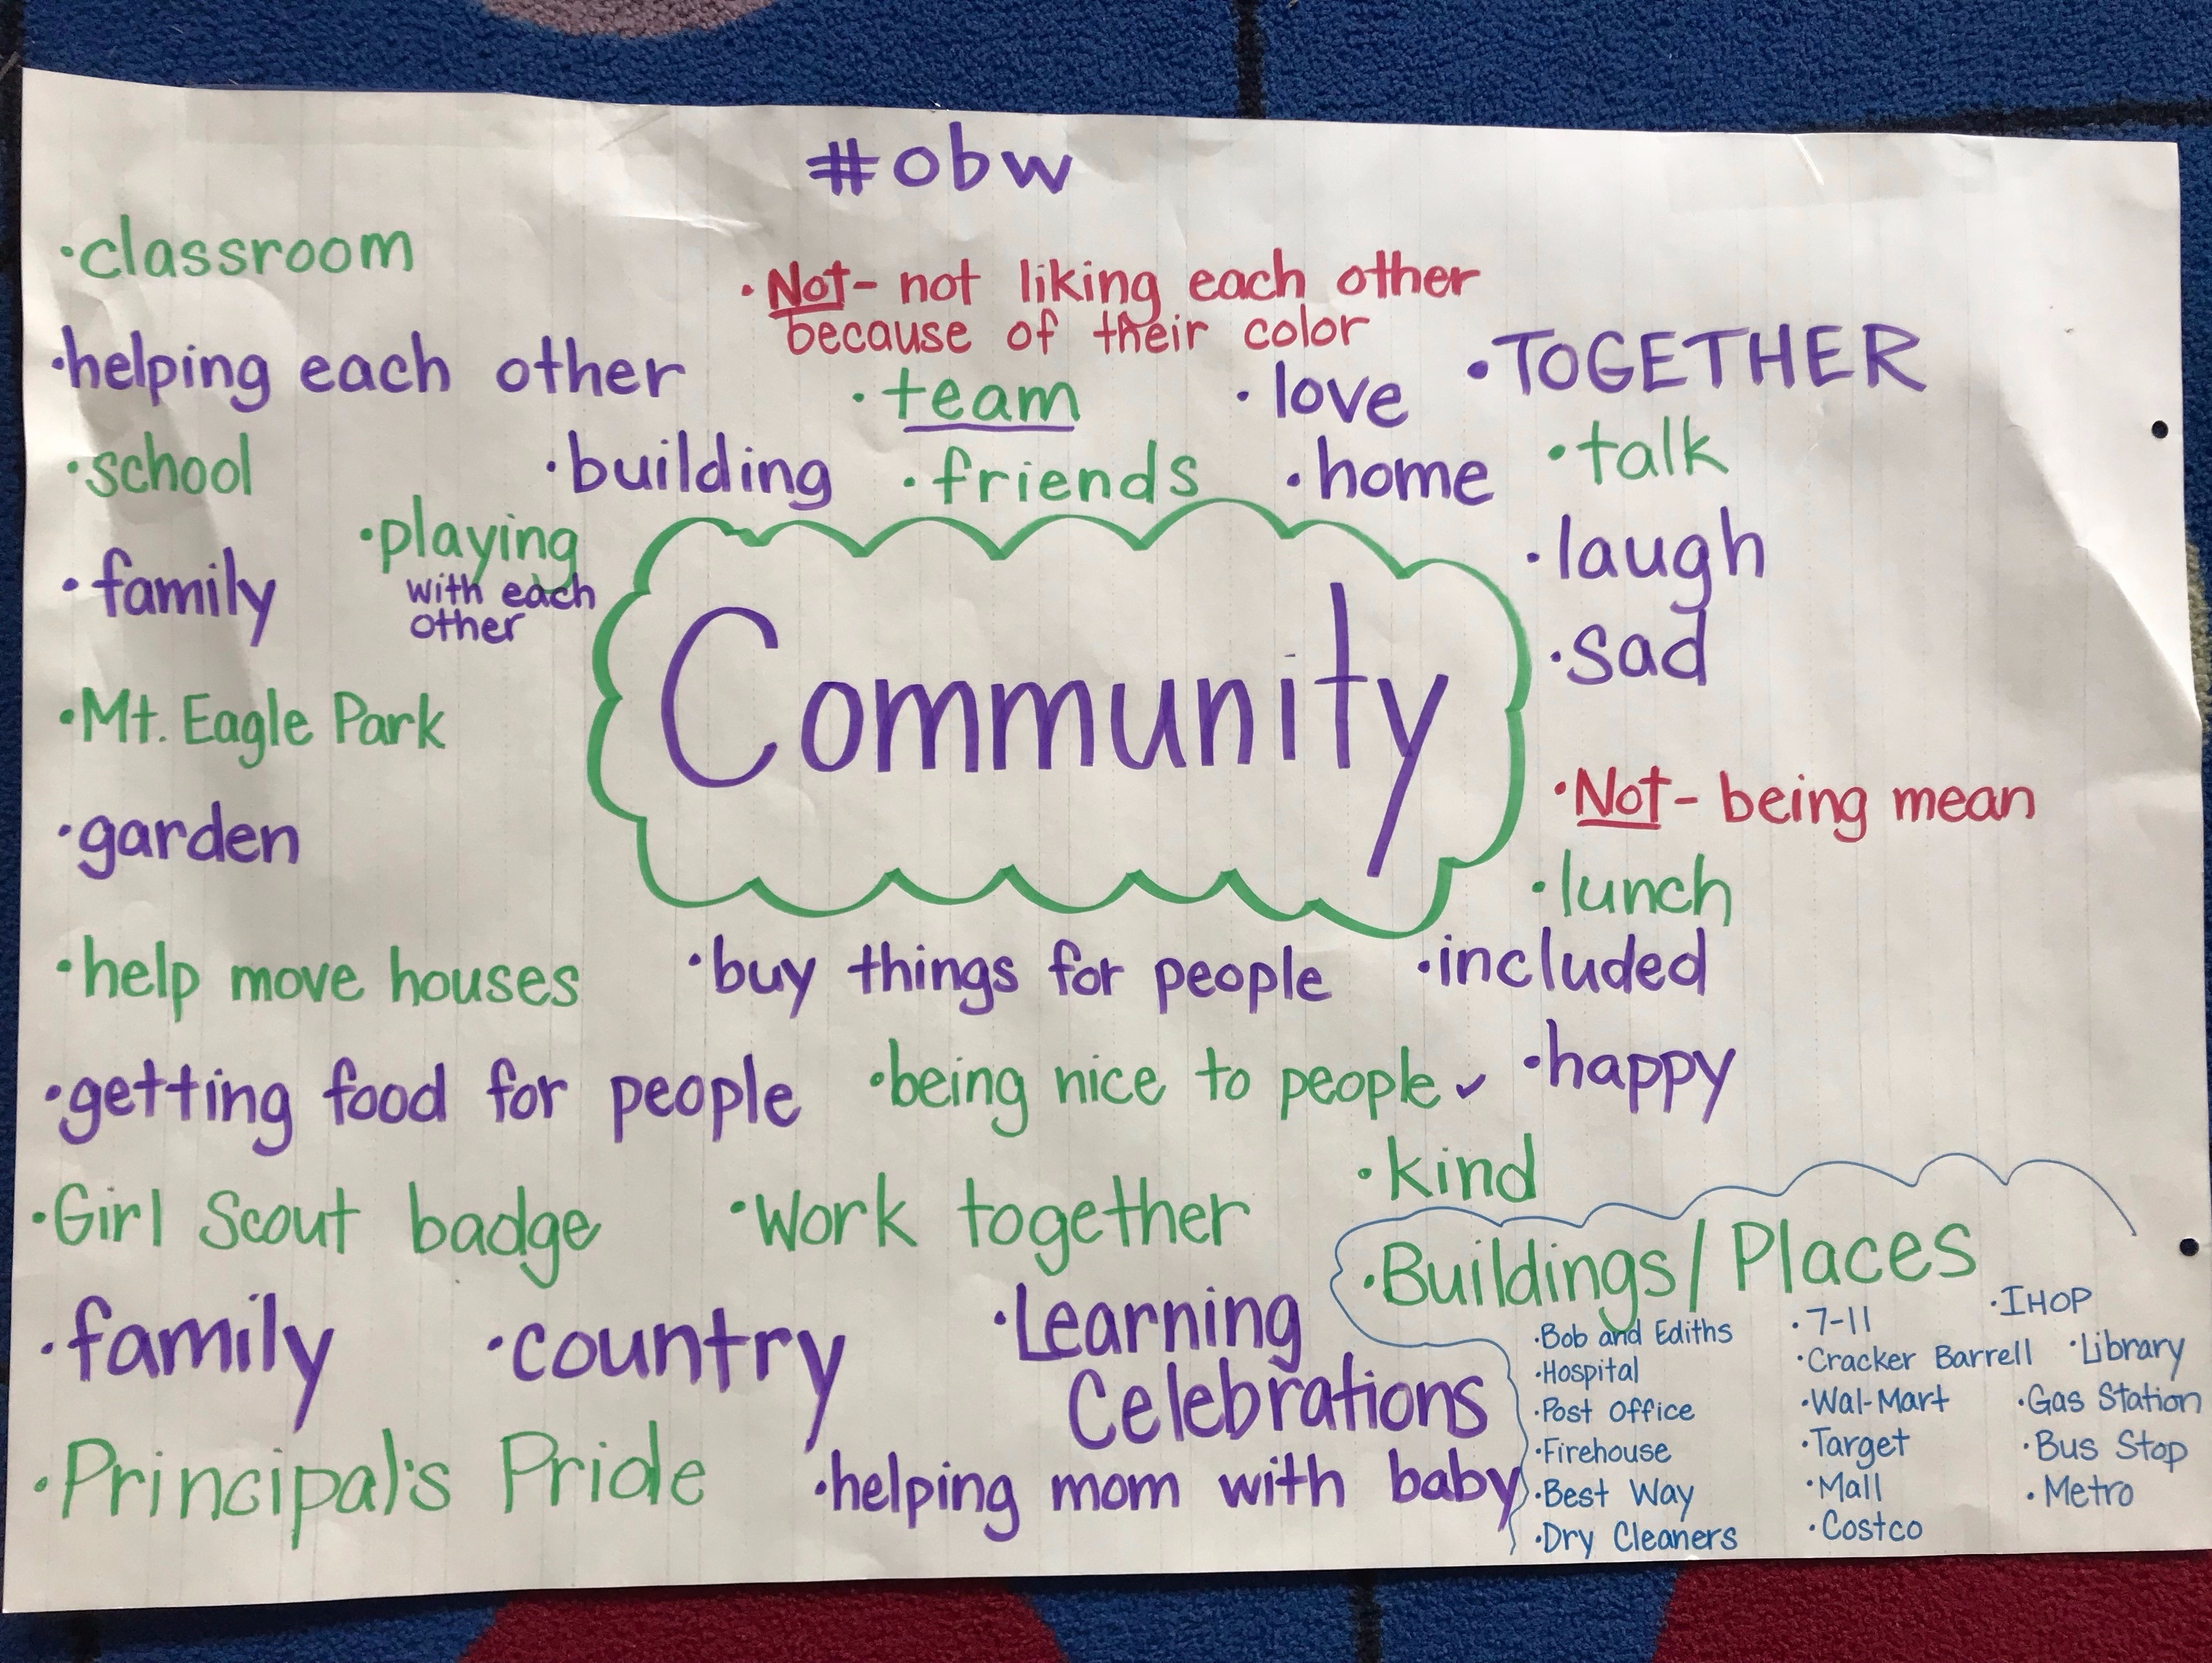 #obw
·classroom
·Not- not liking each other
because of their color
·helping each other
·team
·love
·TOGETHER
·school
·building
·friends
·home
·talk
·playing
with each
other
·family
·laugh
·sad
Community
·Mt. Eagle Park
·garden
·Not- being mean
·lunch
·help move houses
·buy things for people
·included
·getting food for people
·being nice to people ✓
·happy
·kind
·Girl Scout badge
·Work together
·family
·country
·Learning
Celebrations
·Principal's Pride
·helping mom with baby
·Buildings/Places
·Bob and Ediths
·Hospital
·Post Office
·Firehouse
·Best Way
·Dry Cleaners
·7-11
·Cracker Barrell
·Wal-Mart
·Target
·Mall
·Costco
·IHOP
·Library
·Gas Station
·Bus Stop
·Metro